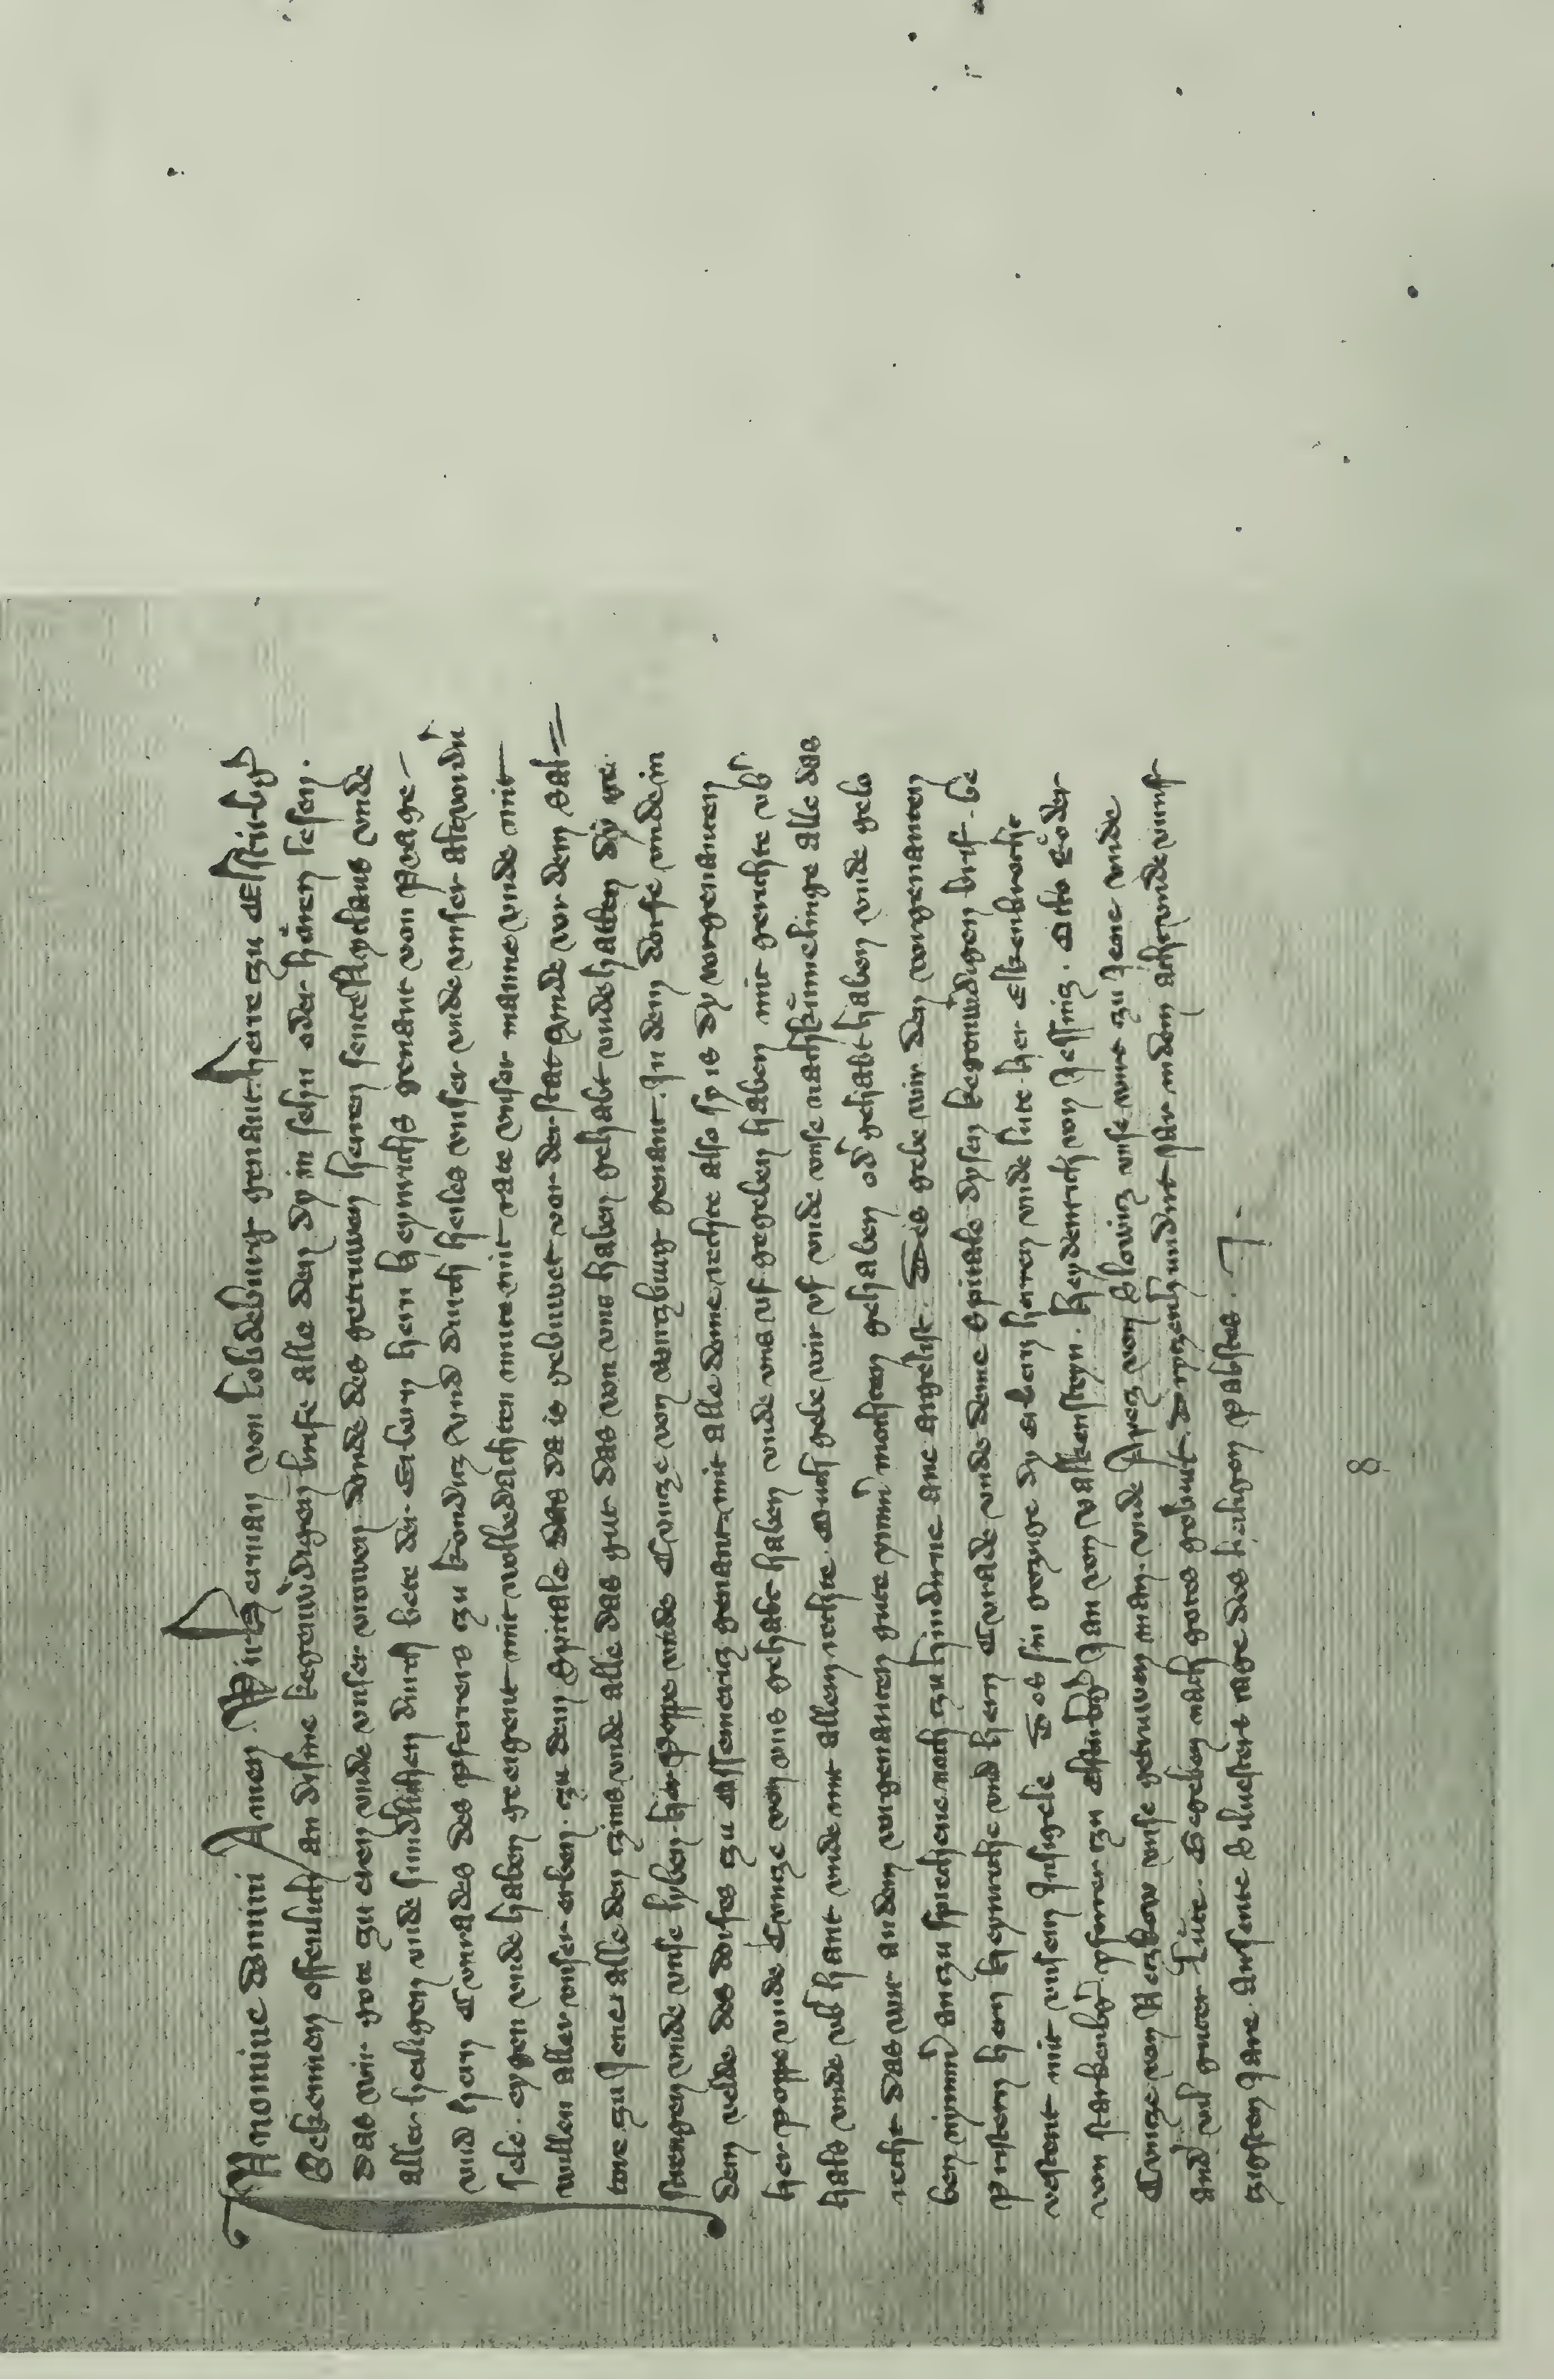 In nomine Domini Amen. Wir Herman von Lobdeburg genant here zu Elstirbg
Bekennen offenlich an disme kegenwˢdigen brife alle den dy in sehn oder hoͤren lesen.
Das wir gote zu eren vnde vnser vrowen. vnde des getruwen herren sente Nyclaus vnde
aller heiligen vnde sundlichen durch bete der Erbern hern heynrichs genant von Prage
vnd hern Cunrades des pferrers zu konditz vnd durch heiles vnser vnde vnser
sele. eygen vnde haben geeigent mit volbedachten mute mit rate vnser manne vnde mit
willen aller vnser erben. zu dem Spitale das da is gebuwet vor der stat vnde vor dem Sal=
tore zu Jene alle den zins vnde alle das gut das von vns haben gehabt vnde hatten dy
strengen vnde vnse lyben her Poppe vnde Cunze von Wirzburg genant. In dem dorfe vnde in
dem velde des dorfes zu Assmeritz genant mit alle deme rechte also sy is dy vorgenanten
her poppe vnde Cunze von vns gehabt haben vnde vns vf gegeben haben mit gerichte vbˢ
hals vnde vbˢ hant vnde mit allem rechte. Ouch gebe wir vf vnde vnse nachkuͤmelinge alle das
recht das wir an dem vorgenanten gute ymmˢ mochten gehaben odˢ gehabt haben vnde gelo
ben nymmˢ an zu sprechene noch zu hindˢne ane argelist. Des gebe wir den vorgenanten
Pristern hern heynriche vnd hern Cunrade vnde deme Spitale dysen kegenwˢdigen brif. be
vestent mit vnsem Insigele Des sin gezuge dy erbern herren vnde lute her Elkenbrecht
von starkenbg pferrer zu Elstirbg Jan von valkensteyn. Heydenrich von Jessnitz. Otto Roͤder
Cunze von vnse getruwen man. vnde Apetz von Blowitz vnse wirt zu Jene vnde
andˢ vil guter Luͤte. Gegeben nach gotes geburt. Dryzenhundirt jar in dem achtvnde vumf
zigsten Jare. An sente Siluesters tage des heiligen pabstes.
8